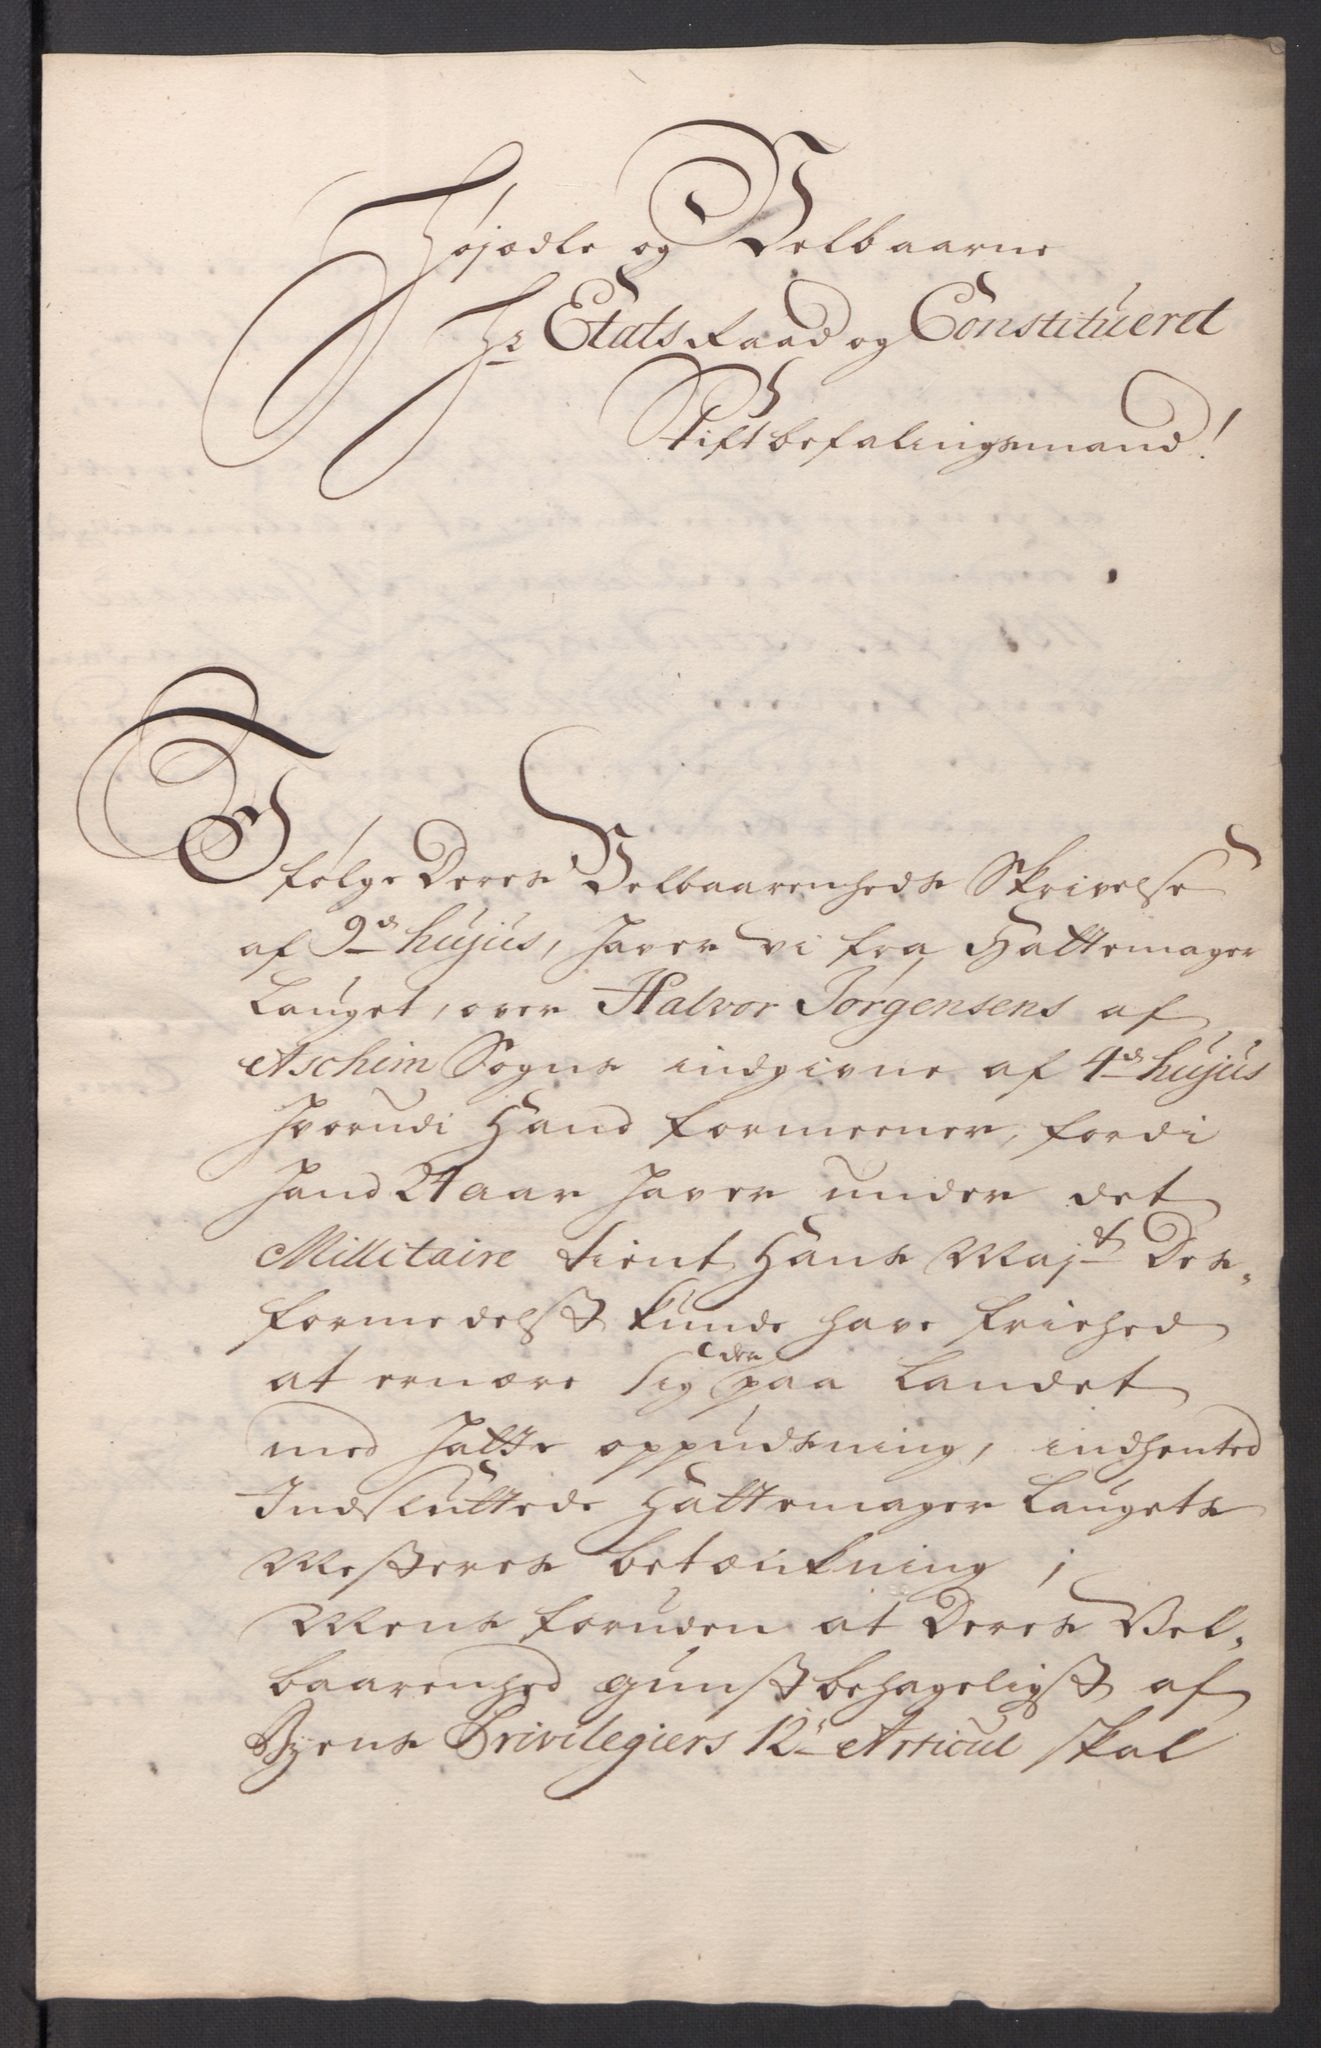 Højædle og Velbaarne
Hr Etats Raad og Constitueret
Stiftbefalingsmand!
I følge Deres Velbaarenheds Skrivelse
af 9de hujus, haver vi fra Hattemager
Lauget, over Halvor Jørgensens af
Aschim Sogns indgivne af 4de hujus
hvorudi Hand formeener, fordi
hand 24 aar haver under det
Millitaire tient Hans Majt Des-
formedelst kunde have friehed
at ernære sig der paa Landet
med hatte oppudsning, indhented
Indsluttede Hattemager Laugets
Mesteres betænkning;
Mens foruden at Deres Vel-
baarenhed gunstbehageligst af
Byens Privilegiers 12te Articul skal